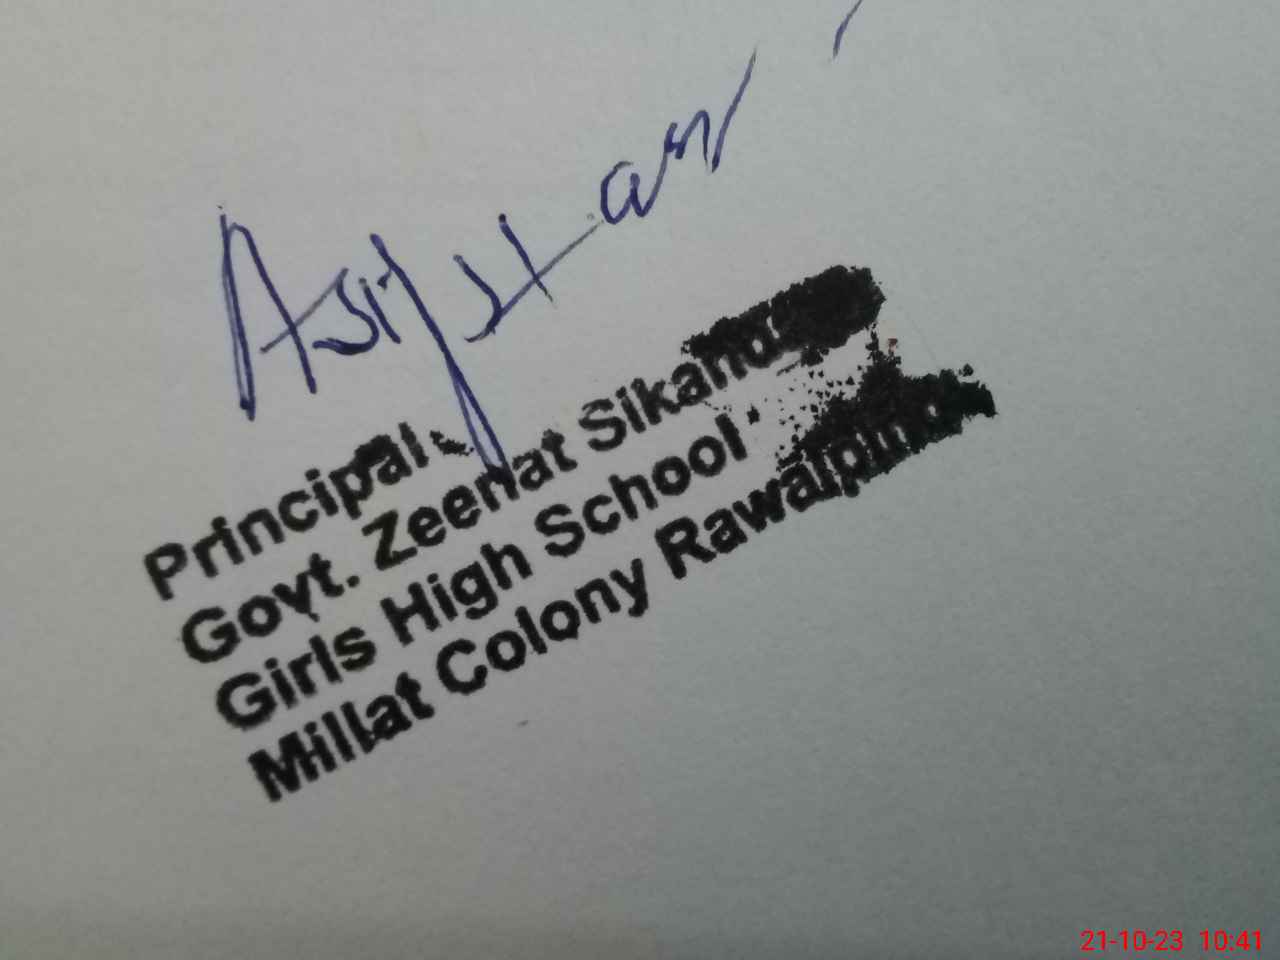 Principal
Govt. Zeenat
Girls High School
Millat Colony Rawalpindi
21-10-23 10:41